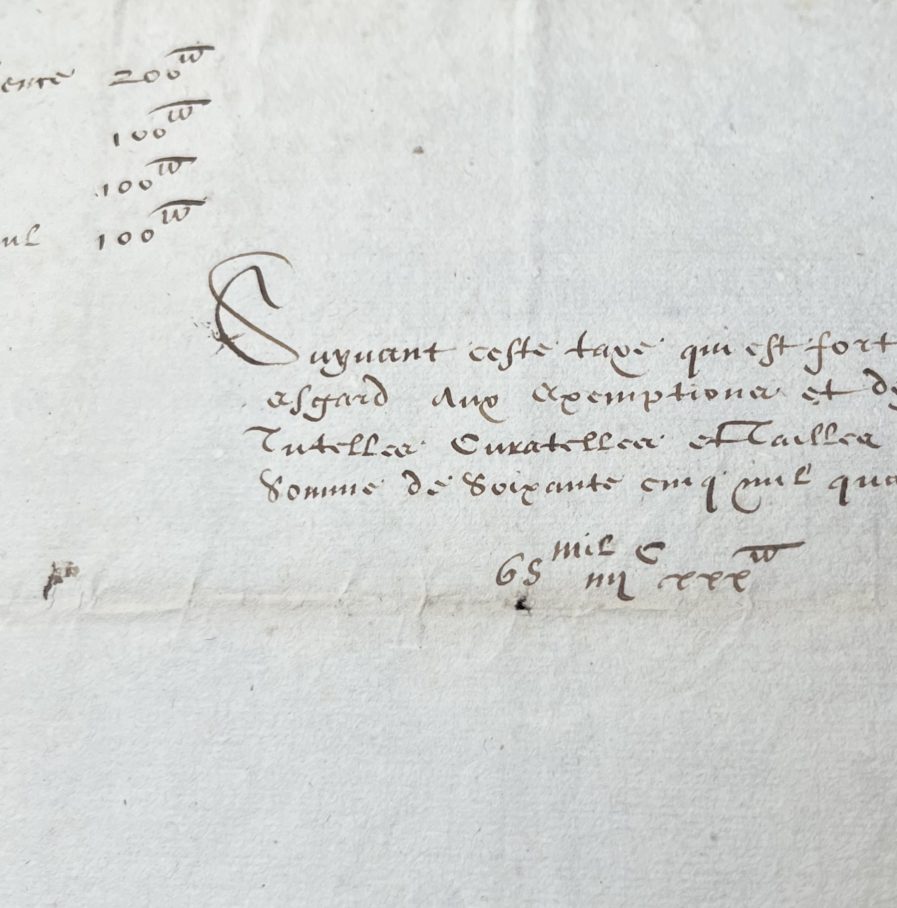 200 ꝟ
100 ꝟ
100 ꝟ
100 ꝟ
Suyuant ceste taxe qui est fort
esgard aux exemptions et de
Tutelles Curatelles et Tailles
Somme de Soixante cinq mil qua
65 mil iiii C xxx ꝟ